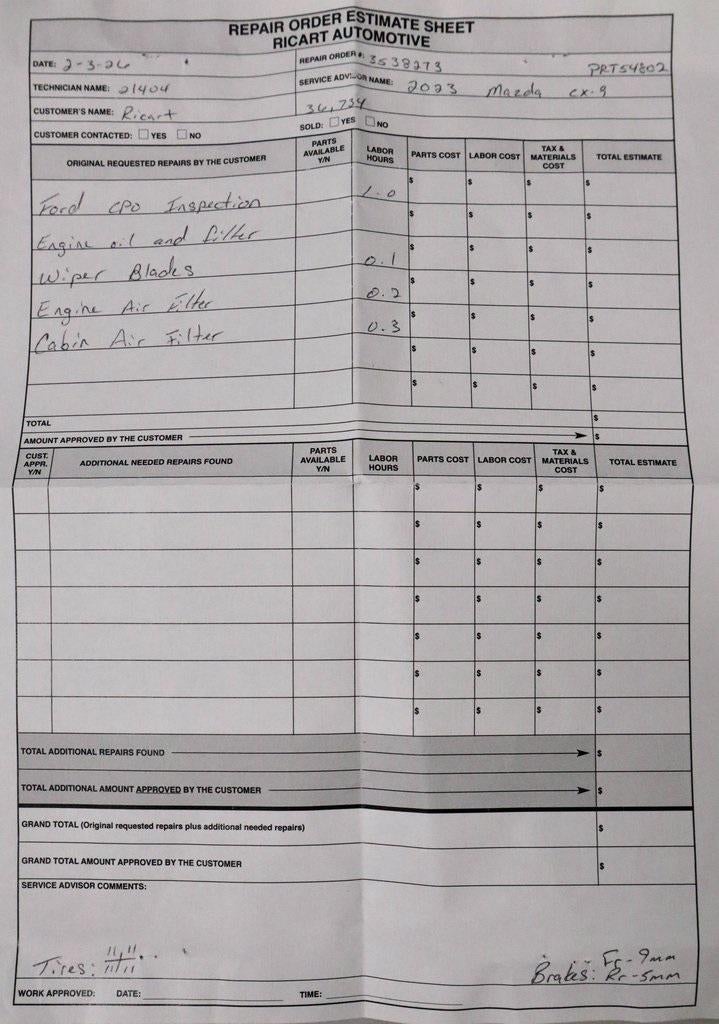 REPAIR ORDER ESTIMATE SHEET
RICART AUTOMOTIVE
DATE: 2-3-26
REPAIR ORDER #: 3538273 PRT54802
TECHNICIAN NAME: 21404
SERVICE ADVISOR NAME: 2023 Mazda cx-9
CUSTOMER'S NAME: Ricart
36,734
CUSTOMER CONTACTED: YES NO
SOLD: YES NO
ORIGINAL REQUESTED REPAIRS BY THE CUSTOMER PARTS AVAILABLE Y/N LABOR HOURS PARTS COST LABOR COST TAX & MATERIALS COST TOTAL ESTIMATE
Ford CPO Inspection 1.0 $ $ $ $
Engine oil and filter $ $ $ $
Wiper Blades 0.1 $ $ $ $
Engine Air Filter 0.2 $ $ $ $
Cabin Air Filter 0.3 $ $ $ $
$ $ $ $
$ $ $ $
TOTAL $
AMOUNT APPROVED BY THE CUSTOMER $
CUST. APPR. Y/N ADDITIONAL NEEDED REPAIRS FOUND PARTS AVAILABLE Y/N LABOR HOURS PARTS COST LABOR COST TAX & MATERIALS COST TOTAL ESTIMATE
$ $ $ $
$ $ $ $
$ $ $ $
$ $ $ $
$ $ $ $
$ $ $ $
$ $ $ $
TOTAL ADDITIONAL REPAIRS FOUND $
TOTAL ADDITIONAL AMOUNT APPROVED BY THE CUSTOMER $
GRAND TOTAL (Original requested repairs plus additional needed repairs) $
GRAND TOTAL AMOUNT APPROVED BY THE CUSTOMER $
SERVICE ADVISOR COMMENTS:
Tires: 11/11 11/11
Brakes: Fr-9mm
Rr-5mm
WORK APPROVED: DATE: TIME: